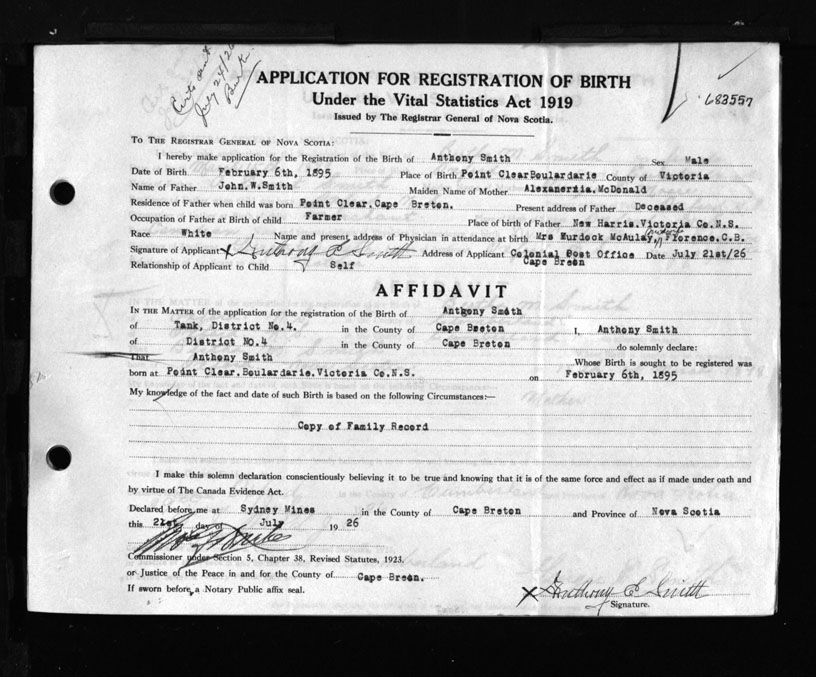 Certs sent
July 24/26
Burk.
683557
APPLICATION FOR REGISTRATION OF BIRTH
Under the Vital Statistics Act 1919
Issued by The Registrar General of Nova Scotia.
To The Registrar General of Nova Scotia:
I hereby make application for the Registration of the Birth of Anthony Smith Sex Male
Date of Birth February 6th, 1895 Place of Birth Point ClearBoulardarie County of Victoria
Name of Father John.W.Smith Maiden Name of Mother Alexaneriia.McDonald
Residence of Father when child was born Point Clear.Cape Breton. Present address of Father Deceased
Occupation of Father at Birth of child Farmer Place of birth of Father New Harris.Victoria Co.N.S.
Race White Name and present address of Physician in attendance at birth Mrs Murdock McAulay, Florence.C.B.
Signature of Applicant X Anthony E Smith Address of Applicant Colonial Post Office Date July 21st/26
Relationship of Applicant to Child Self Cape Breon
AFFIDAVIT
In the Matter of the application for the registration of the Birth of Anthony Smith
of Tank, District No.4. in the County of Cape Breton I, Anthony Smith
of District NO.4 in the County of Cape Breton do solemnly declare:
That Anthony Smith Whose Birth is sought to be registered was
born at Point Clear.Boulardarie.Victoria Co.N.S. on February 6th, 1895
My knowledge of the fact and date of such Birth is based on the following Circumstances:—
Copy of Family Record
I make this solemn declaration conscientiously believing it to be true and knowing that it is of the same force and effect as if made under oath and
by virtue of The Canada Evidence Act.
Declared before me at Sydney Mines in the County of Cape Breton and Province of Nova Scotia
this 21st day of July 1926
Commissioner under Section 5, Chapter 38, Revised Statutes, 1923.
or Justice of the Peace in and for the County of Cape Breon.
If sworn before a Notary Public affix seal.
X Anthony E Smith
Signature.